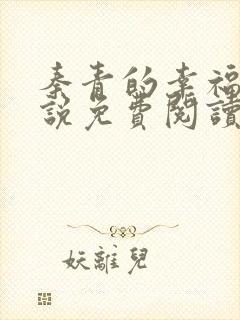 秦青的幸福
説免費閱讀
妖離兒